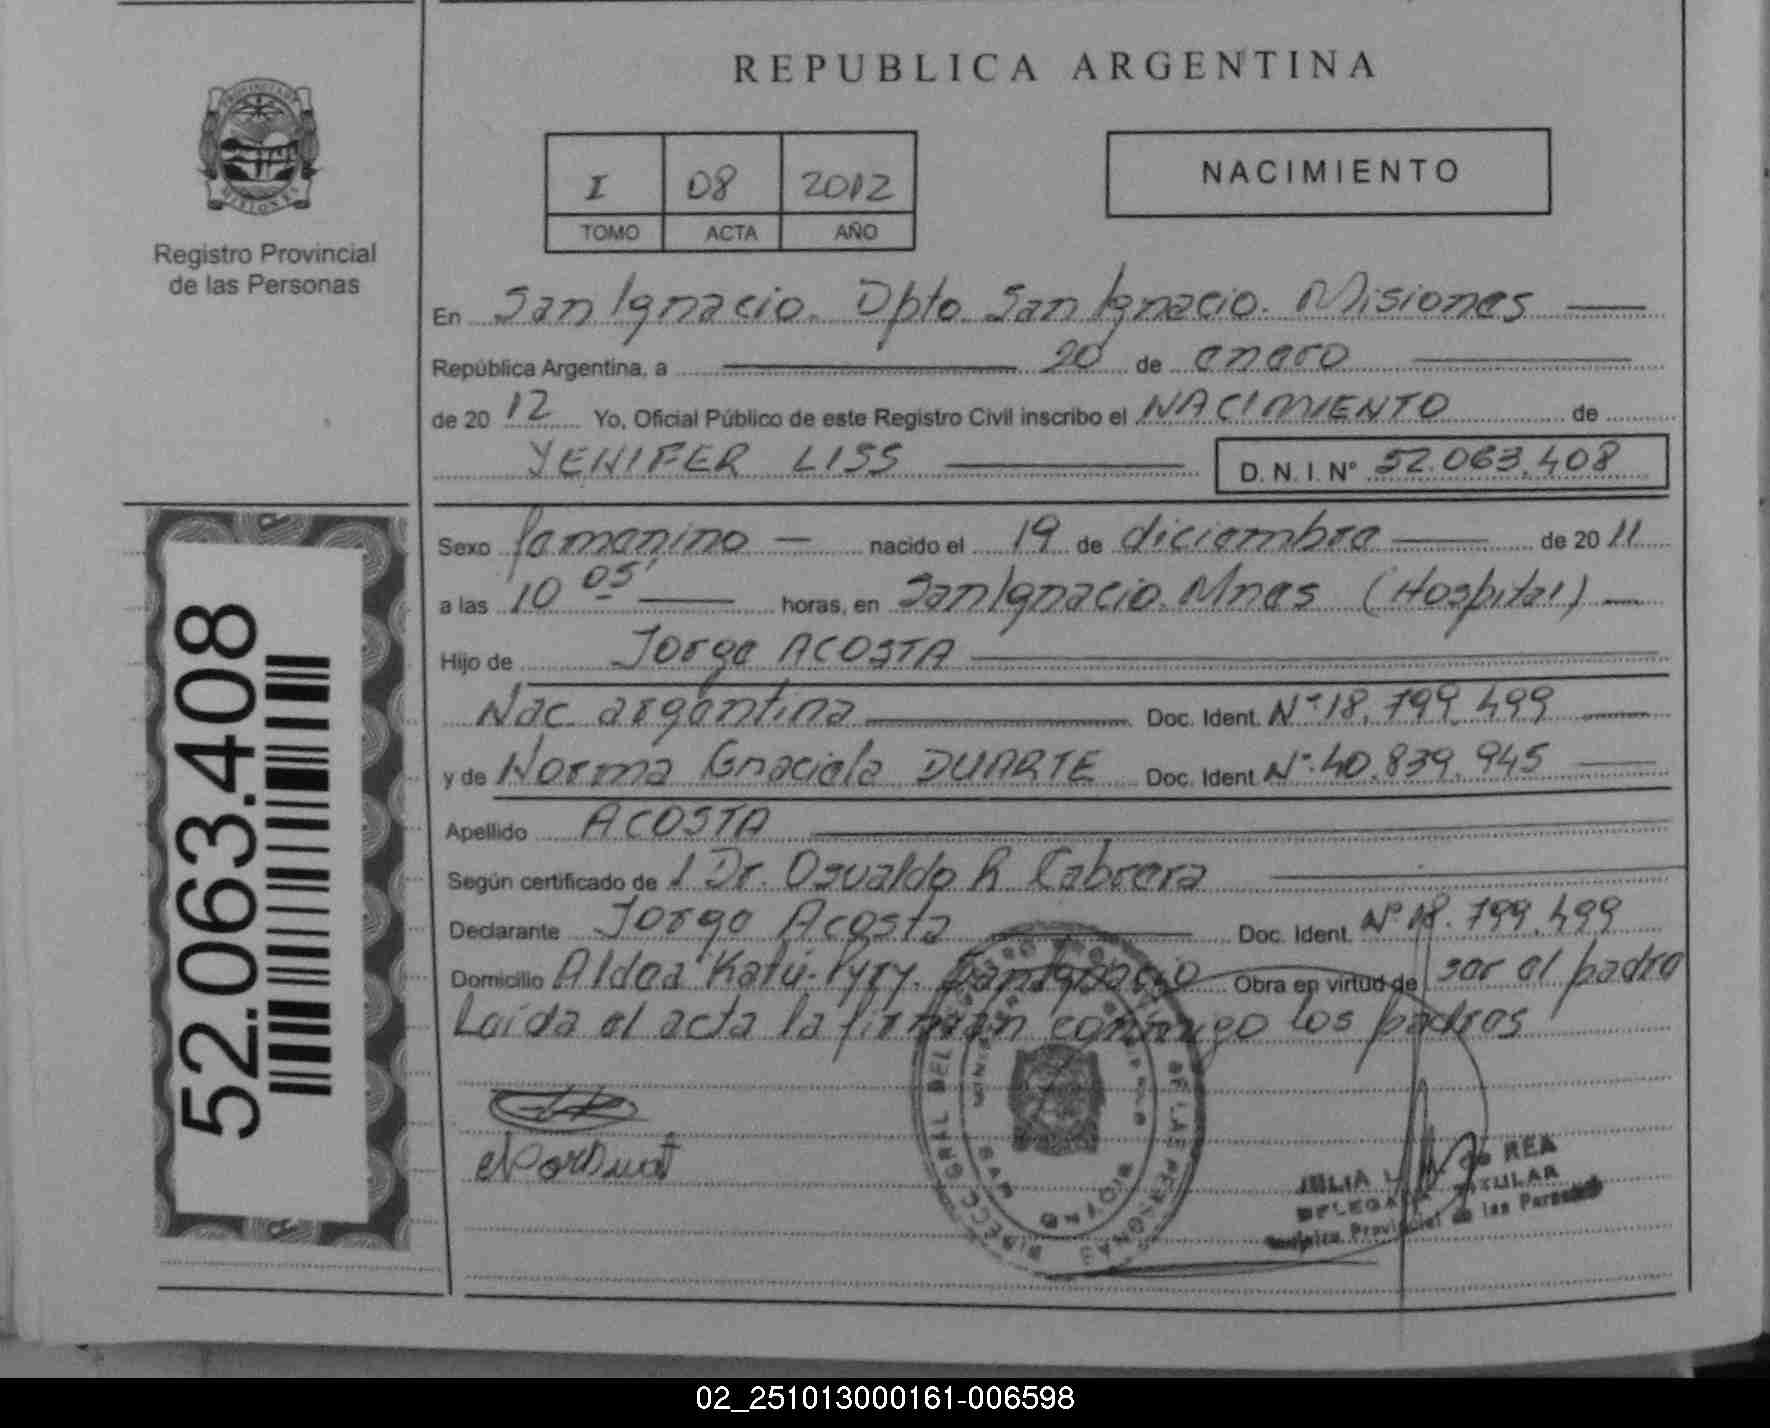 REPUBLICA ARGENTINA
PROVINCIA DE
MISIONES
Registro Provincial
de las Personas
I 08 2012
TOMO ACTA AÑO
NACIMIENTO
En San Ignacio. Dpto San Ignacio. Misiones
República Argentina, a 20 de enero
de 2012 Yo, Oficial Público de este Registro Civil inscribo el NACIMIENTO de
YENIFER LISS D.N.I. Nº 52.063.408
Sexo femenino nacido el 19 de diciembre de 2011
a las 10 05' horas, en San Ignacio. Mnes (Hospital)
Hijo de Jorge ACOSTA
Nac argentina Doc. Ident. Nº 18.799.499
y de Norma Graciela DUARTE Doc. Ident Nº: 40.839.945
Apellido ACOSTA
Según certificado de l Dr. Osvaldo R Cabrera
Declarante Jorge Acosta Doc. Ident. Nº 18.799.499
Domicilio Aldea Katú-Pyry. San Ignacio Obra en virtud de ser el padre
Leída el acta la firman conmigo los padres
JULIA de REA
DELEGADA TITULAR
Provincial de las Personas
52.063.408
02_251013000161-006598